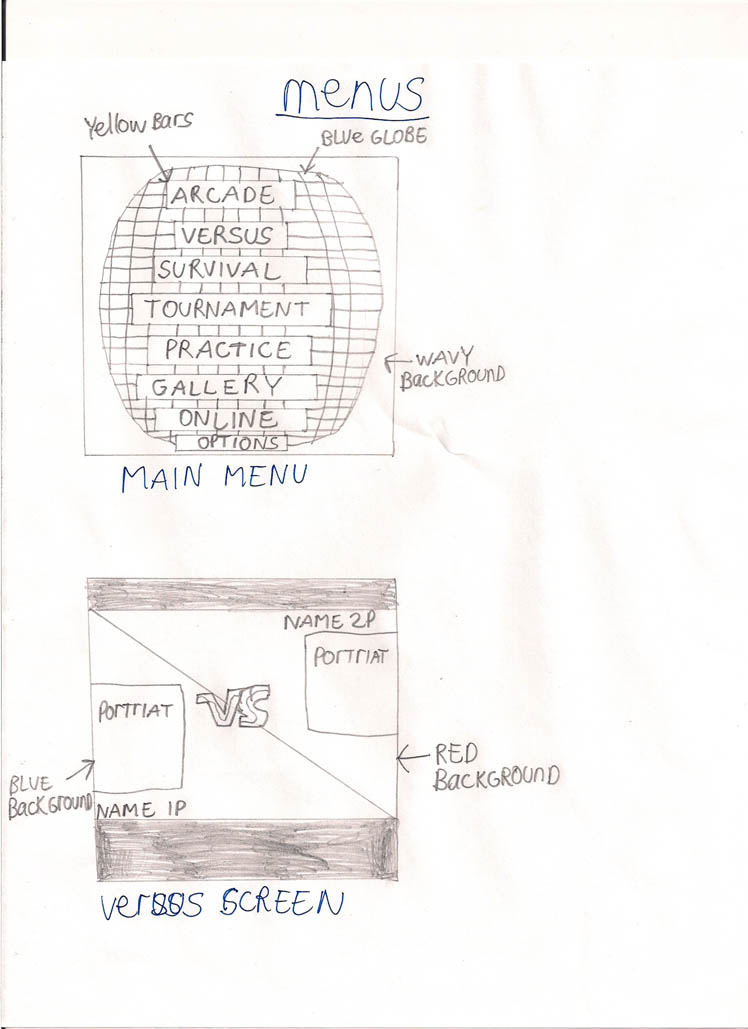 menus
Yellow Bars
BLUe GLOBE
ARCADE
VERSUS
SURVIVAL
TOURNAMENT
PRACTICE
GALLERY
ONLINE
OPTIONS
WAVY
BacKGROUND
MAIN MENU
NAME 2P
PORTRIAT
PORTRIAT
VS
NAME 1P
BLUE
BacKGROUND
RED
BacKGROUND
VerSUS SCREEN